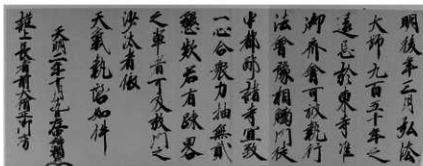 明後年三月弘法
大師九百五十年之
遠忌於東寺准
御斎会可被執行
法会豫相觸門徒
中都鄙諸寺宜致
一心合衆力抽無貳
懇歎若有疎略
之輩者可及放門之
沙汰者依
天氣執啓如件
天明二年
謹上長者前